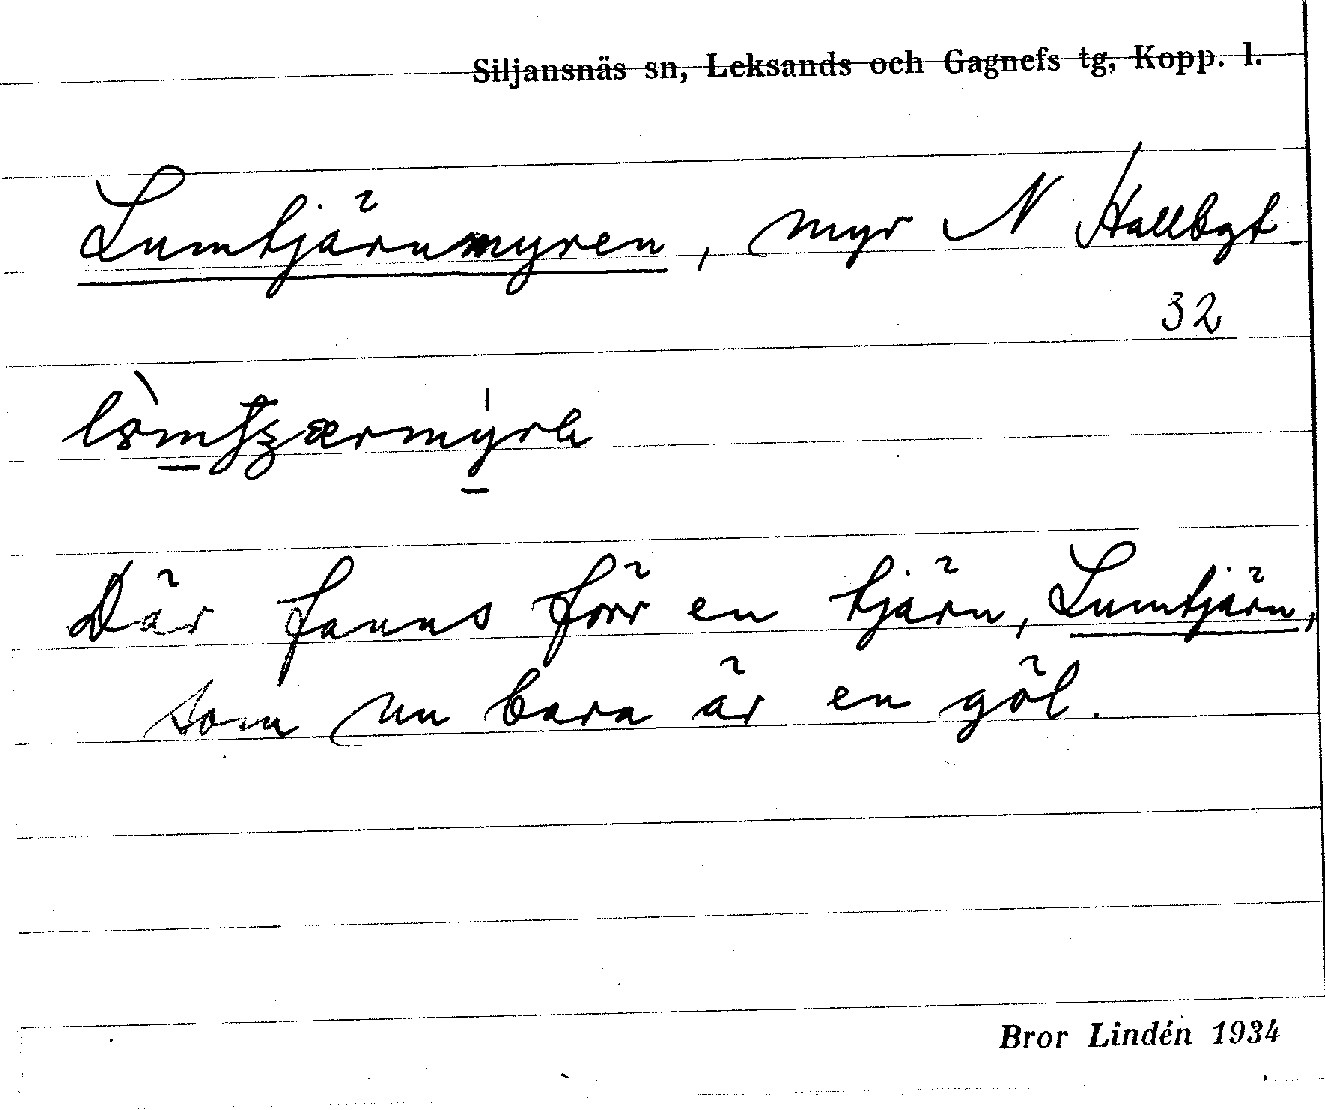 Siljansnäs sn, Leksands och Gagnefs tg, Kopp. l.
Lumtjärnmyren, myr N Hallbgt
32
Där fanns förr en tjärn, Lumtjärn,
som nu bara är en göl.
Bror Lindén 1934